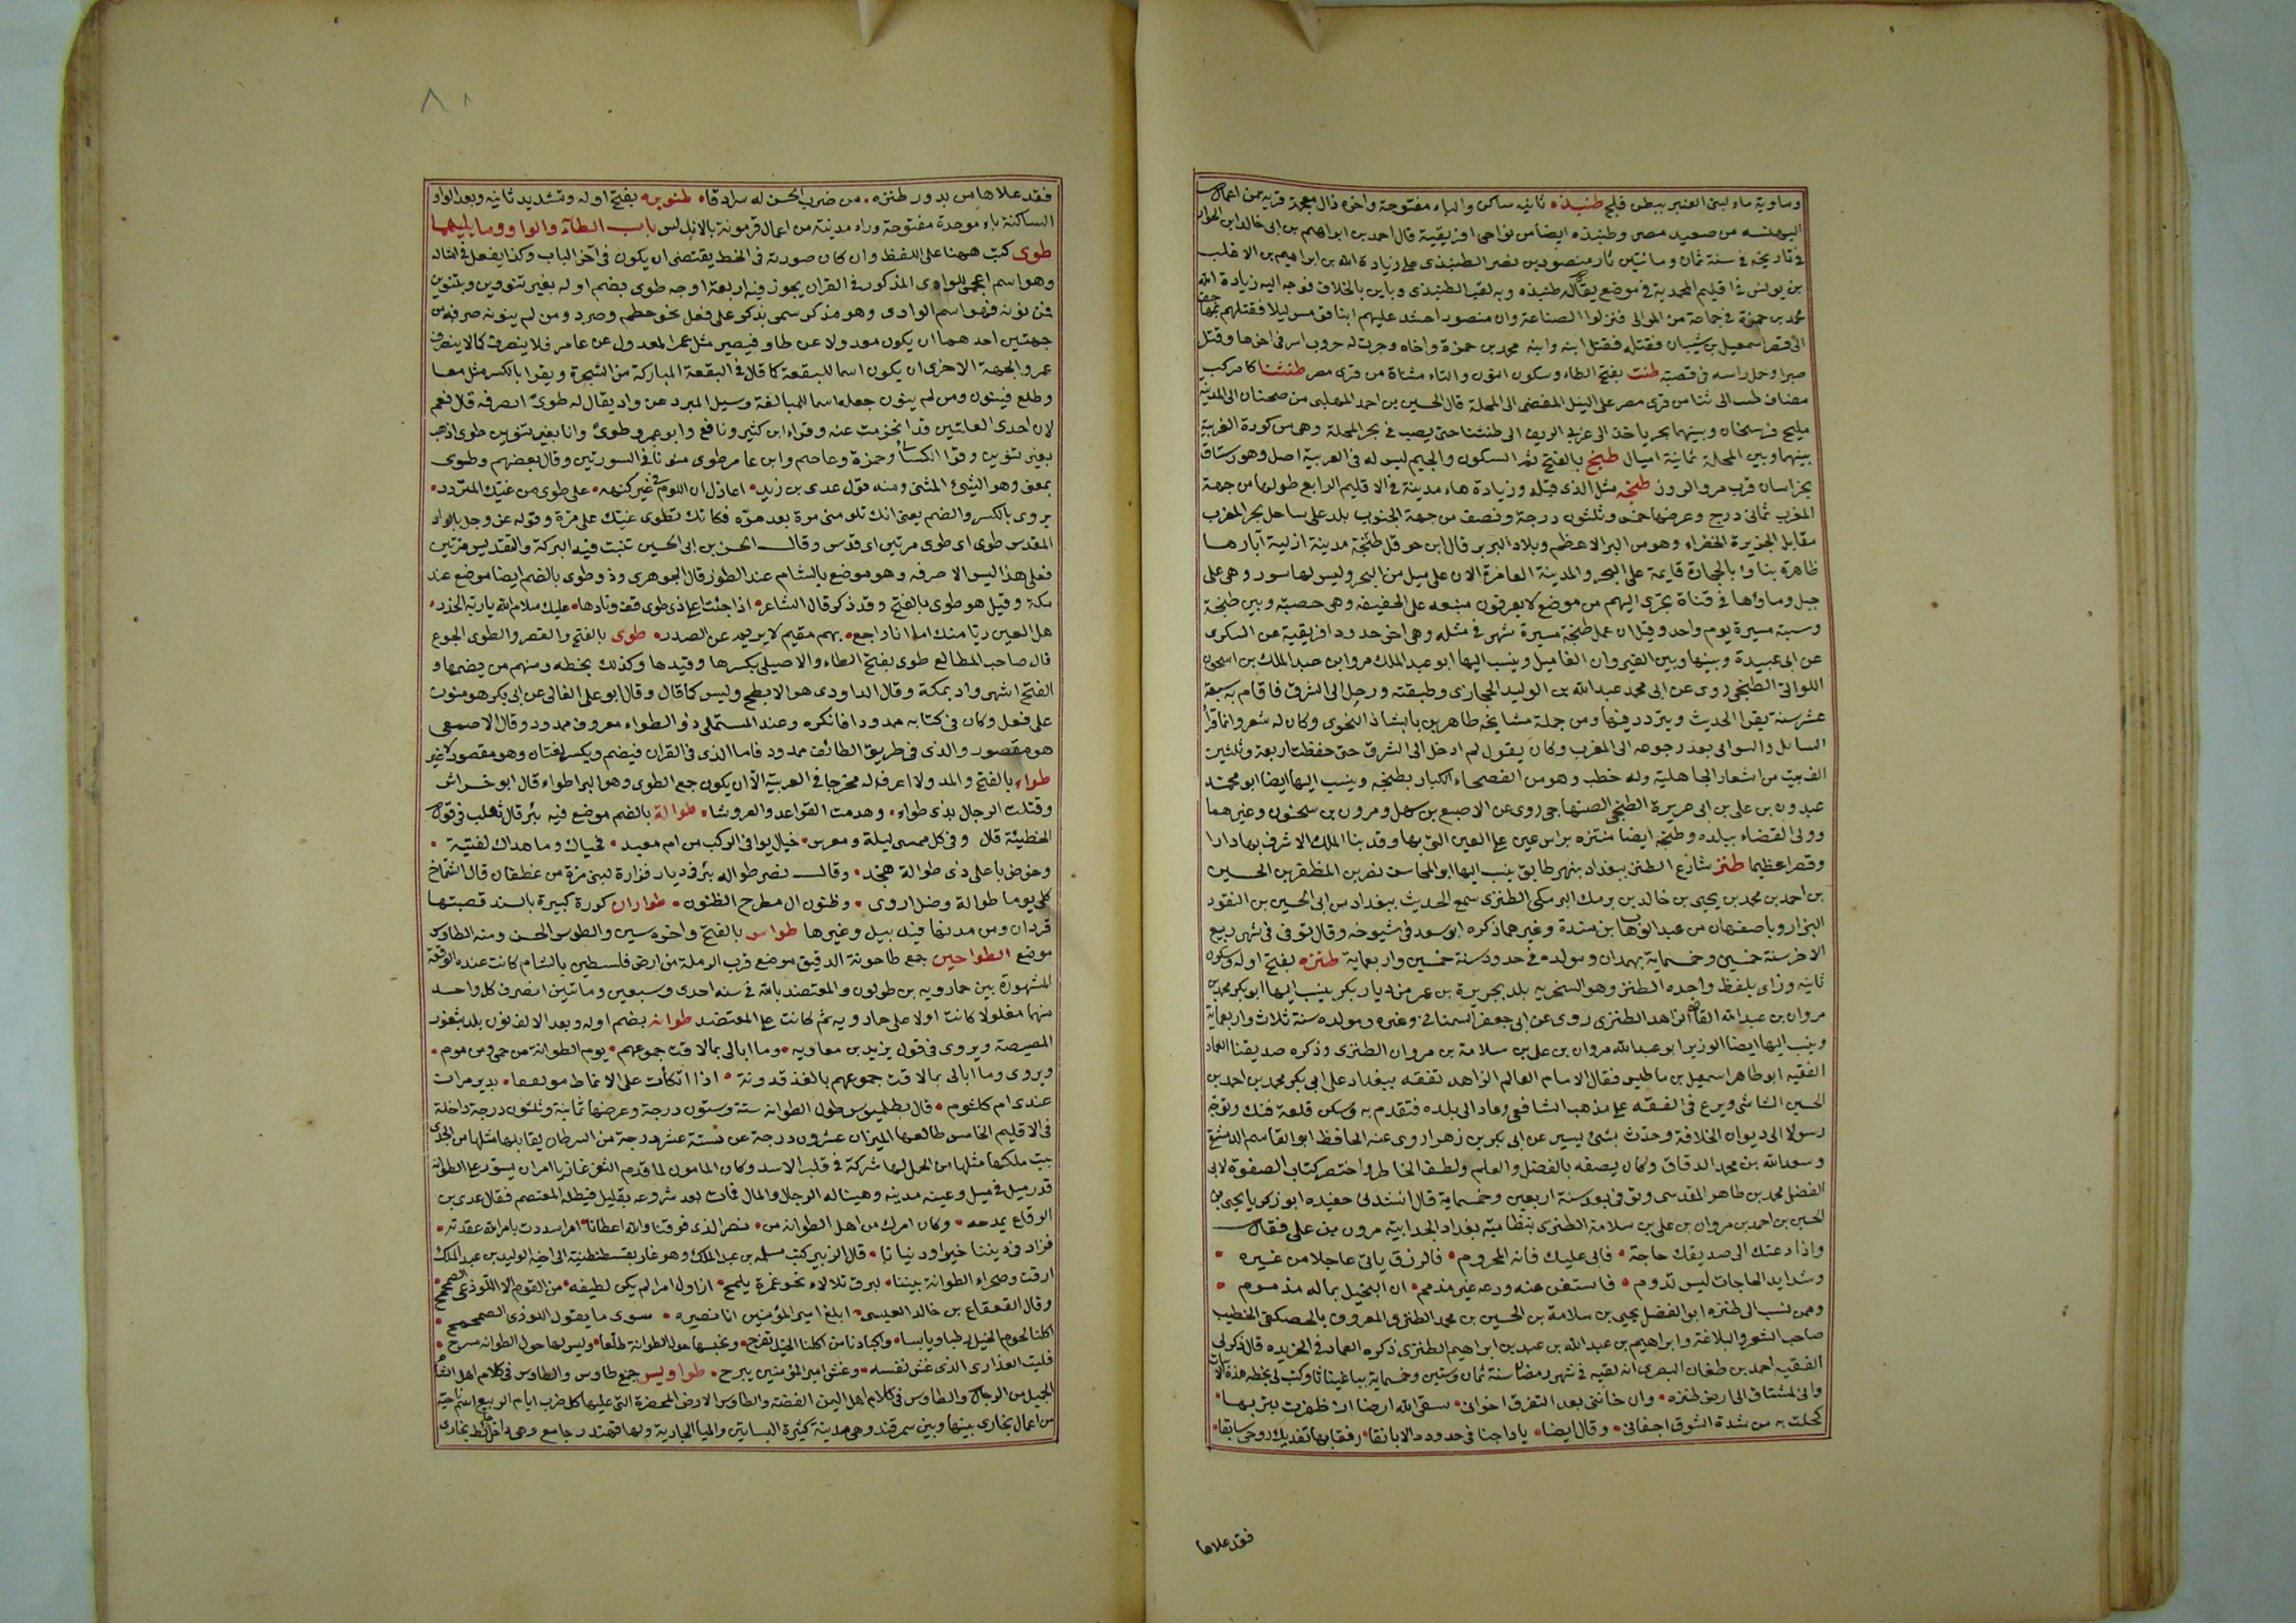 وماوية ماء لبنى العنبر ببطن فلج طنبذه ثانيه ساكن والباء مفتوحة واخره ذال معجمة قرية من اعمال
البهنسه من صعيد مصر وطنبذه ايضا من نواحى افريقية قال احمد بن ابراهيم بن ابى خالد ابن الجزار
فى تاريخه فى سنة ثمان ومائتين ثار منصور بن نصر الطنبذى على زيادة الله بن ابراهيم بن الاغلب
بن يونس فى اقليم المحمدية فى موضع يقال له طنبذه وبه لقب الطنبذى وباين بالخلاف فوجه اليه زيادة الله
محمد بن حمزة فى جماعة من الموالى فنزلوا الصناعة وان منصور احشد عليهم ليلا فقتلهم
الى قصر اسمعيل بن شيبان فقتله فقتل ابنه وابنه محمد بن حمزة واخاه وجرت له حروب اسر فى اخرها وقتل
صبرا وحمل راسه فى قصبة طنت بفتح الطاء وسكون النون والتاء مثناة من قرى مصر طنتثنا كا مركب
مضاف طنت الى ثنا من قرى مصر على النيل المفضى الى المحلة قال الحسين بن احمد المهلبى من صخنان الى المدينة
مليج فرسخان وبينهما بحر ياخذ الى غربى الريف الى طنتثنا حتى يصب فى بحر المحلة وهى من كورة الغربية
بينها وبين المحلة ثمانية اميال طنج بالفتح ثم السكون والجيم ليس له فى العربية اصل وهو رستاق
بخراسان قرب مرو الروذ طنجه مثل الذى قبله وزيادة هاء مدينة فى الاقليم الرابع طولها من جهة
المغرب ثمانى درج وعرضها خمس وثلثون درجة ونصف من جهة الجنوب بلد على ساحل بحر المغرب
مقابل الجزيرة الخضراء وهو من البر الاعظم وبلاد البربر قال ابن حوقل طنجة مدينة ازلية آبارها
ظاهرة بناؤها بالحجارة قايمة على البحر والمدينة العامرة الان على ميل من البحر وليس لها سور وهى على
جبل وماؤها فى قناة يجرى اليهم من موضع لا يعرفون منبعه على الحقيقة وهى خصبة وبين طنجة
وسبتة مسيرة يوم واحد وقيل ان عمل طنجة مسيرة شهر فى مثله وهى اخر حدود افريقية عن السكرى
عن ابى عبيدة وبينها وبين القيروان الفا ميل وينسب اليها ابو عبد الملك مروان بن عبد الملك بن اسحون
اللواتى الطنجى روى عن ابى محمد عبد الله بن الوليد الحجازى وطبقته ورحل الى الشرق فاقام به سبعة
عشر سنة يقرا الحديث ويتردد فيها ومن جملة مشايخه طاهر بن بابشاذ النحوى وكان له شعر وانما قرأ
السابل والسوابى بعد رجوعه الى المغرب وكان يقول لم ادخل الى الشرق حتى حفظت اربعة وثلثين
الف بيت من اشعار الجاهلية وله خطب وهو من الفصحاء الكبار بطنجه وينسب اليها ايضا ابو محمد
عبدون بن على بن ابى عزيزة الطنجى الصنهاجى روى عن الاصبع بن سهل ومرون بن سحنون وغيرهما
وولى القضاء ببلده وطنجه ايضا منتزه براس عين على العين التى بها وقد بنا الملك الاشرف بها دارا
وقصرا عظيما طنز شارع الطنز ببغداد بنهر طابق ينسب اليها ابو المحاسن نصر بن المظفر بن الحسين
بن احمد بن محمد بن يحيى بن خالد بن برمك البرمكى الطنزى سمع الحديث ببغداد من ابى الحسين بن النقور
البزار وباصفهان من عبد الوهاب ابن مندة وغيرهما ذكره ابو سعد فى شيوخه وقال توفى فى شهر ربيع
الاخر سنة خمسين وخمسماية بهمدان ومولده فى حدود سنة خمسين واربعماية طنزه بفتح اوله وسكون
ثانيه وزاى بلفظ واحده الطنز وهو السخرية بلد بجزيرة بن عمر من ديار بكر ينسب اليها ابو بكر محمد بن
مروان بن عبد الله القاضى الزاهد الطنزى روى عن ابى جعفر السمنانى وغيره ومولده سنة ثلاث واربعماية
وينسب اليها ايضا الوزير ابو عبد الله مروان بن على بن سلامة بن مروان الطنزى وذكره صديقنا العماد
الفقيه ابو طاهر اسمعيل بن باطيس فقال الامام العالم الزاهد تفقه ببغداد على ابى بكر محمد بن احمد بن
الحسين الشاشى وبرع فى الفقه على مذهب الشافعى وعاد الى بلده فتقدم به وسكن قلعة فنك وتوجه
رسولا الى ديوان الخلافة وحدث بشئ يسير عن ابى بكر بن زهرا روى عنه الحافظ ابو القاسم الدمشقى
وسعد الله بن محمد الدقاق وكان يصفه بالفضل والعلم ولطف الخاطر واختصر كتاب الصفوة لابى
الفضل محمد بن طاهر المقدسى وتوفى بعد سنة اربعين وخمسماية قال انشدنى حفيده ابو زكريا يحيى بن
الحسين بن احمد بن مروان بن على بن سلامة الطنزى بنظامية بغداد لجد ابيه مرون بن على فقال
واذا دعتك الى صديقك حاجة • فابى عليك فانه المحروم • فالرزق ياتى عاجلا من غيره •
وشدايد الحاجات ليس تدوم • فاستغن عنه ودعه غير مذمم • ان البخيل بماله مذموم •
وممن نسب الى طنزه ابو الفضل يحيى بن سلامة بن الحسين بن محمد الطنزى المعروف بالحصكفى الخطيب
صاحب الشعر والبلاغة وابراهيم بن عبد الله بن عبد بن ابراهيم الطنزى ذكره العماد فى الخريده قال ذكر لى
الفقيه احمد بن طغان البصرى انه لقيه فى شهر رمضان سنة ثمان وستين وخمسماية بباغينا ثا وكتب لى بخطه هذه الابيات
وانى لمشتاق الى ارض طنزه • وان خاننى بعد التفرق اخوانى • سقى الله ارضا ان ظفرت بتربها •
كحلت به من شدة الشوق اجفانى • وقال ايضا • يا داجنا فى حدود دالابانقا • رفقا بها تفديك روحى سايقا •
فقد علاها
فقد علاها من بدور طنزه • من ضرب الحسن له سرادقا • طنوبره بفتح اوله وتشديد ثانيه وبعد الواو
الساكنة باء موحدة مفتوحة وراء مدينة من اعمال قرمونة بالاندلس باب الطآء والواو وما يليهما
طوى كتب ههنا على اللفظ وان كان صورته فى الخط يقتضى ان يكون فى اخر الباب وكذا يفعل فى امثاله
وهو اسم اعجمى للوادى المذكور فى القران يجوز فيه اربعة اوجه طوى بضم اوله بغير تنوين وبتنوين
فمن نونه فهو اسم الوادى وهو مذكر سمى بذكر على فعل نحو حطم وصرد ومن لم ينونه صرفه من
جهتين احدهما ان يكون معدولا عن طاو فيصير مثل عمر المعدول عن عامر فلا ينصرف كما لا ينصرف
عمر والجهة الاخرى ان يكون اسما للبقعة كما قال فى البقعة المباركة من الشجرة ويقرا بالكسر مثل معا
وطلع فينون ومن لم ينون جعله اسما للمبالغة وسيل المبرد عن واد يقال له طوى انصرفه قال نعم
لان احدى العلتين قد انخرمت عنه وقراء ابن كثير ونافع وابو عمرو طوى وانا بغير تنوين طوى اذهب
بغير تنوين وقرا الكسائى وحمزة وعاصم وابن عامر طوى منونا فى السورتين وقال بعضهم وطوى
بمعنى وهو الشئ المثنى ومنه قول عدى بن زيد • اعاذل ان اللوم فى غير كنهه • على طوى من غيك المتردد •
يروى بالكسر والضم يعنى انك تلومنى مرة بعد مرة فكانك تطوى غيك على مرة وقوله عز وجل بالواد
المقدس طوى اى طوى مرتين اى قدس وقال الحسن بن ابى الحسين ثنيت فيه البركة والتقديس مرتين
فعلى هذا ليس الا صرفه وهو موضع بالشام عند الطور قال الجوهرى وذو طوى بالضم ايضا موضع عند
مكة وقيل هو طوى بالفتح وقد ذكر قال الشاعر • اذا جئت اعلى ذى طوى قف ونادها • عليك سلام الله يا ربة الخدر •
هل العين ريا منك ام انا راجع • بهم مقيم لا يريم عن الصدر • طوى بالفتح والقصر والطوى الجوع
قال صاحب المطالع طوى بفتح الطاء والاصيلى بكسرها وقيدها وكذلك بخطه ومنهم من يضمها و
الفتح اشهر واد بمكة وقال الداودى هو الابطح وليس كما قال وقال ابو على القالى عن ابى بكر هو منون
على فعل وكان فى كتابه ممدودا فانكره وعند المستملى ذو الطواء معروف ممدود وقال الاصمعى
هو مقصور والذى فى طريق الطائف ممدود فاما الذى فى القران فيضم ويكسر لغتان وهو مقصور لا غير
طواء بالفتح والمد ولا اعرف له مخرجا فى العربية الا ان يكون جمع الطوى وهو البراطواء قال ابو خراش
وقتلت الرجال بذى طواء • وهدمت القواعد والعروشا • طوالة بالضم موضع فيه بئر قال ثعلب فى قول
الحطيئة قال وفى كل ممسى ليلة ومعرس • خيال يوافى الركب من ام معبد • فحياك وما هداك لفتية •
وخوض باعلى ذى طوالة هجد • وقال نصر طواله بئر فى ديار فزارة لبنى مرة من غطفان قال الشماخ
كلى يوما طوالة وصل اروى • وظنون ال مطرح الظنون • طواران كورة كبيرة بالسند قصبتها
قزدان ومن مدنها قندبيل وغيرها طواس بالفتح واخره سين والطوس الحسن ومنه الطاوس
موضع الطواحين جمع طاحونة الدقيق موضع قرب الرملة من ارض فلسطين بالشام كانت عنده الوقعة
المشهورة بين خمارويه بن طولون والمعتضد بالله فى سنه احدى وسبعين ومائتين انصرف كل واحد
منهما مفلولا كانت اولا على خمارويه ثم كانت على المعتضد طوانه بضم اوله وبعد الالف نون بلد بثغور
المصيصة ويروى فى قول يزيد بن معاويه • وما ابالى بما لاقت جموعهم • يوم الطوانة من حمى ومن موم •
ويروى وما ابالى بما لاقت جموعهم بالغذقدونة • اذا اتكأت على الانماط مرتفعا • بدير مران
عندى ام كلثوم • قال بطلميوس طول الطوانه ستة وستون درجة وعرضها ثمانية وثلثون درجة داخلة
فى الاقليم الخامس طالعها الميزان عشرون درجة عن ستة عشر درجة من السرطان يقابلها مثلها من الجدى
بيت ملكها مثلها من الحمل لها شركة فى قلب الاسد وكان المامون لما قدم الثغر غازيا امر ان يسور على الطوانه
قدر ميل فى ميل وعينه مدينه وهيا له الرجال والمال فمات بعد شروعه بقليل فبطله المعتصم فقال عدى بن
الرقاع يمدحه • وكان امرك من اهل الطوانه من • نصر الذى فوقنا والله اعطانا • امرا سددت بامر الله عقدته •
فزاد فى ديننا خيرا ودنيانا • قال الزبير كتب مسلمه بن عبد الملك وهو غاز بقسطنطينية الى اخيه الوليد بن عبد الملك
ارقت وصحراء الطوانة بيننا • لبرق تلالاء نحو غمرة يلمح • ازاول امرا لم يكن لطيفه • من القوم الا اللوذعى الصمحمح •
وقال القعقاع بن خالد العبسى • ابلغ امير المؤمنين انا نصيره • سوى ما يقول اللوذى الصمحمح •
اكلنا لحوم الخيل رطبا ويابسا • واكبادنا من اكلنا الخيل تقرح • ونحبسها حول الطوانة طلعا • وليس لها حول الطوانه مسرح •
فليت الفذارى الذى غش نفسه • وغش امير المؤمنين يبرح • طواويس جمع طاوس والطاوس فى كلام اهل الشام
الجميل من الرجال والطاوس فى كلام اهل اليمن الفضة والطاوس الارض المخضرة التى عليها كل ضرب ايام الربيع اسم ناحية
من اعمال بخارى بينها وبين سمرقند وهى مدينة كثيرة البساتين والميا الجارية ولها قهندر جامع وهى داخل حائط بخارى